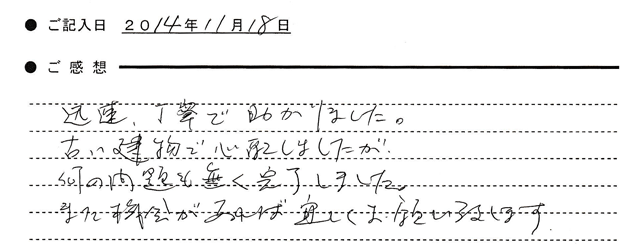 ● ご記入日 2014年11月18日
● ご感想
迅速、丁寧で助かりました。
古い建物で心配しましたが
何の問題も無く完了しました。
また機会があれば宜しくお願いいたします